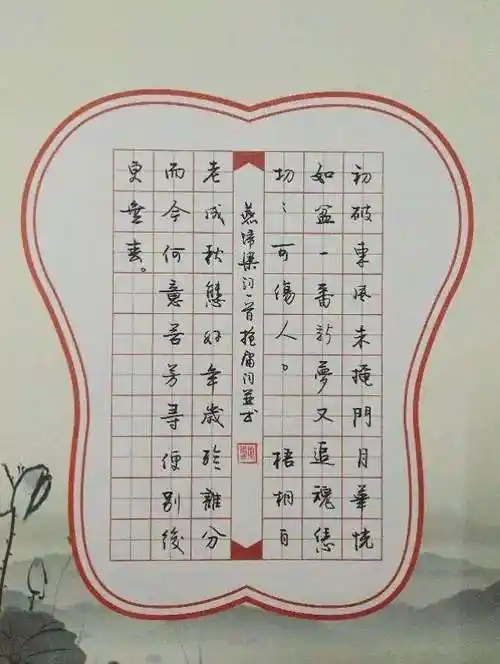 初破東風未掩門月華恍
如盆一番新夢又追魂
切:可傷人。 梧桐自
燕歸梁詞一首 抱庸詞並書
老成秋態好年歲離分
而今何意芳尋便別後
更無春。